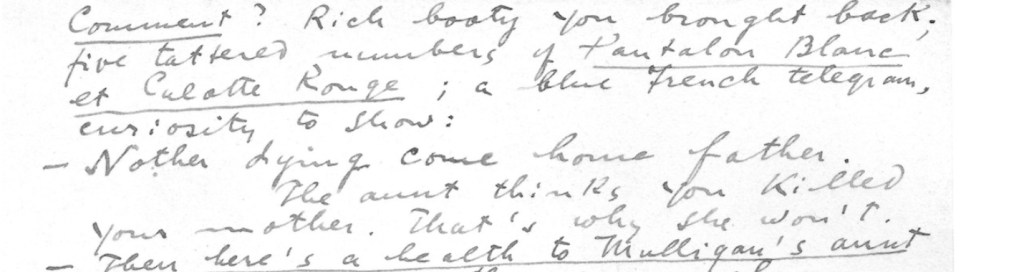 Comment? Rich booty you brought back;
five tattered numbers of Pantalon Blanc
et Culotte Rouge; a blue French telegram,
curiosity to show:
— Nother dying come home father.
The aunt thinks you killed
your mother. That's why she won't.
— Then here's a health to Mulligan's aunt